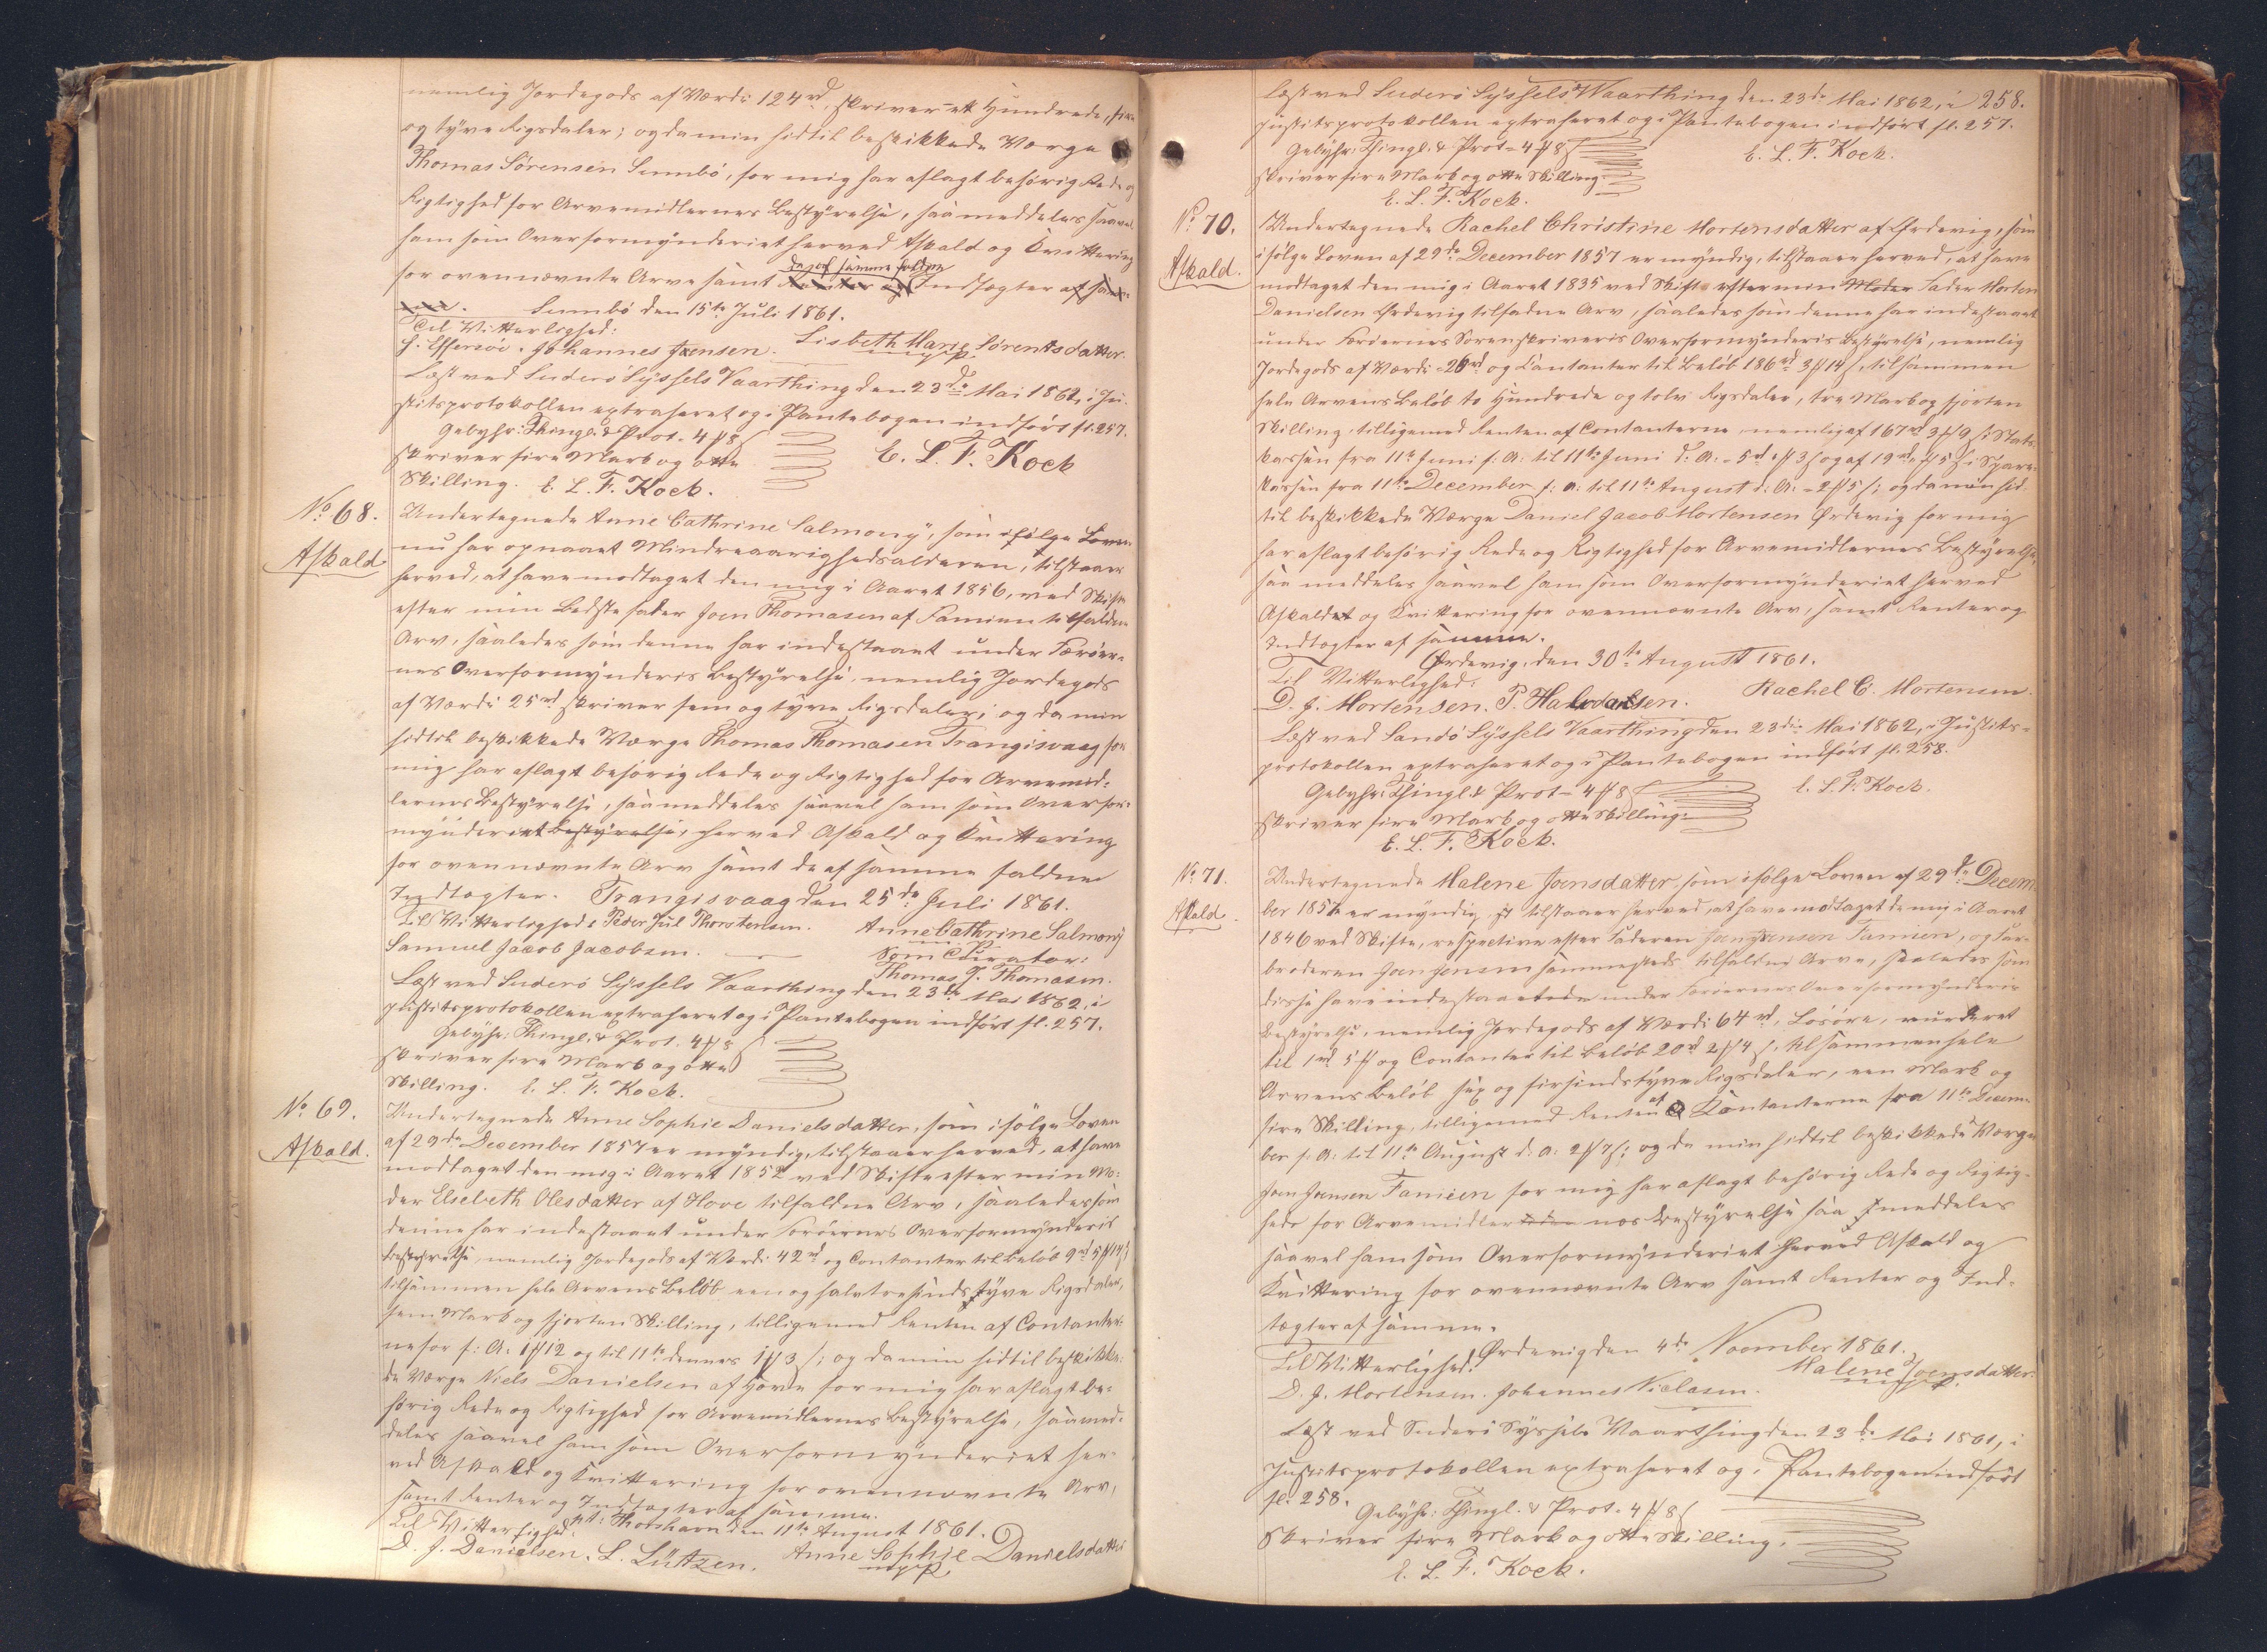 nemlig Jordegods af Værdi 124 rd, skriver et Hundrede, fire
og tyve Rigsdaler; og da min hidtil beskikkede Værge
Thomas Sørensen Sumbø, for mig har aflagt behørig Rede og
Rigtighed for Arvemidlernes Bestyrelse, saa meddeles saavel
ham som Overformynderiet herved Afkald og Kvittering
de af samme faldne
for ovennævnte Arv samt Renter og Indtægter af sam-
me. Sumbø den 15te Juli 1861.
Til Vitterlighed:
Johannes Joensen. Lisbeth Marie Sørensdatter
m. p. P.
Læst ved Suderø Syssels Vaarthing den 23de Mai 1862, i Ju-
stitsprotokollen extraheret og i Pantebogen indført fl. 257.
Gebyhr: Thingl. & Prot. 4 # 8 ß
skriver fire Mark og otte E. L. F. Kock
Skilling. E. L. F. Kock.
No 68. Undertegnede Anne Cathrine Salmony, som ifølge Loven
Afkald nu har opnaaet Mindreaarighedsalderen, tilstaaer
herved, at have modtaget den mig i Aaret 1856, ved Skifte
efter min Bedstefader Joen Thomasen af Famien tilfaldne
Arv, saaledes som denne har indestaaet under Færøer-
nes Overformynderis Bestyrelse, nemlig Jordegods
af Værdi 25 rd skriver fem og tyve Rigsdaler; og da min
hidtil beskikkede Værge Thomas Thomasen Trangisvaag for
mig har aflagt behørig Rede og Rigtighed for Arvemid-
lernes Bestyrelse, saa meddeles saavel ham som Overfor-
mynderiet Bestyrelse, herved Afkald og Kvittering
for ovennævnte Arv samt de af samme faldne
Indtægter. Trangisvaag den 25de Juli 1861.
Til Vitterlighed: Peder Jul Thorstensen. Anne Cathrine Salmony
Samuel Jacob Jacobsen. Som Curator:
Thomas J. Thomasen.
Læst ved Suderø Syssels Vaarthing den 23de Mai 1862, i
Justitsprotokollen extraheret og i Pantebogen indført fl. 257.
Gebyhr: Thingl. & Prot. 4 # 8 ß
skriver fire Mark og otte
Skilling. E. L. F. Kock.
No 69. Undertegnede Anne Sophie Danielsdatter, som ifølge Loven
Afkald. af 29de December 1857 er myndig, tilstaaer herved, at have
modtaget den mig i Aaret 1852 ved Skifte efter min Mo-
der Elsebeth Olesdatter af Hove tilfaldne Arv, saaledes som
denne har indestaaet under Færøernes Overformynderis
Bestyrelse, nemlig Jordegods af Værdi 42 rd og Contanter til Beløb 9 rd 5 # 14 ß
tilsammen hele Arvens Beløb een og halvtresindstyve Rigsdaler,
fem Mark og fjorten Skilling, tilligemed Renten af Contanter-
ne for f: A: 1 # 12 og til 11te dennes 1 # 3 ß; og da min hidtil beskikke-
de Værge Niels Danielsen af Hove for mig har aflagt be-
hørig Rede og Rigtighed for Arvemidlernes Bestyrelse, saa med-
deles saavel ham som Overformynderiet her-
ved Afkald og Kvittering for ovennævnte Arv,
samt Renter og Indtægter af samme.
Thorshavn den 11te August 1861.
Til Vitterlighed:
D. J. Danielsen. L. Lützen. Anne Sophie Danielsdatter
m. p. P.
Læst ved Suderø Syssels Vaarthing den 23de Mai 1862, i 258.
Justitsprotokollen extraheret og i Pantebogen indført fl. 257.
Gebyhr: Thingl. & Prot. 4 # 8 ß E. L. F. Kock.
skriver fire Mark og otte Skilling.
E. L. F. Kock.
No 70. Undertegnede Rachel Christine Mortensdatter af Ørdevig, som
Afkald. ifølge Loven af 29de December 1857 er myndig, tilstaaer herved, at have
modtaget den mig i Aaret 1835 ved Skifte efter min Moder Fader Morten
Danielsen Ørdevig tilfaldne Arv, saaledes som denne har indestaaet
under Færøernes Sorenskriveris Overformynderis Bestyrelse, nemlig
Jordegods af Værdi 26 rd og Contanter til Beløb 186 rd 3 # 14 ß, tilsammen
hele Arvens Beløb to Hundrede og tolv Rigsdaler, tre Mark og fjorten
Skilling, tilligemed Renten af Contanterne nemlig af 167 rd 3 # 9 ß i Stats-
kassen fra 11te Juni f: A: til 11te Juni d: A: 5 rd # 3 ß og af 19 rd # 5 ß i Spare-
kassen fra 11te December f: a: til 11te August d: A: 2 # 5 ß; og da min hid-
til beskikkede Værge Daniel Jacob Mortensen Ørdevig for mig
har aflagt behørig Rede og Rigtighed for Arvemidlernes Bestyrelse,
saa meddeles saavel ham som Overformynderiet herved
Afkald og Kvittering for ovennævnte Arv, samt Renter og
Indtægter af samme.
Ørdevig, den 30te August 1861.
Til Vitterlighed:
D. J. Mortensen. P. Halvdansen. Rachel C. Mortensen.
Læst ved Sandø Syssels Vaarthing den 23de Mai 1862, i Justits-
protokollen extraheret og i Pantebogen indført fl. 258.
Gebyhr: Thingl. & Prot. 4 # 8 ß E. L. F. Kock.
skriver fire Mark og otte Skilling.
E. L. F. Kock.
No 71. Undertegnede Malene Joensdatter som ifølge Loven af 29de Decem-
Afkald. ber 1857 er myndig, tilstaaer herved, at have modtaget de mig i Aaret
1846 ved Skifte, respective efter Faderen Joen Joensen Famien, og Far-
broderen Joen Joensen sammesteds tilfaldne Arve, saaledes som
disse have indestaaet under Færøernes Overformynderis
Bestyrelse, nemlig Jordegods af Værdi 64 rd, Løsøre, vurderet
til 1 rd 5 # og Contanter til Beløb 20 rd 2 # 4 ß, tilsammen hele
Arvens Beløb sex og firsindstyve Rigsdaler, een Mark og
fire Skilling, tilligemed Renten af Contanterne fra 11te Decem-
ber f: A: til 11te August d. a: 2 # 7 ß; og da min hidtil beskikkede Værge
Joen Joensen Famien for mig har aflagt behørig Rede og Rigtig-
hed for Arvemidlernes Bestyrelse saa meddeles
saavel ham som Overformynderiet herved Afkald og
Kvittering for ovennævnte Arv samt Renter og Ind-
tægter af samme.
Ørdevig den 4de November 1861.
Til Vitterlighed: Malene Joensdatter
D. J. Mortensen. Johannes Niclasen. m. p. P.
Læst ved Suderø Syssels Vaarthing den 23de Mai 1861, i
Justitsprotokollen extraheret og i Pantebogen indført
fl. 258.
Gebyhr: Thingl. & Prot. 4 # 8 ß
skriver fire Mark og otte Skilling.
E. L. F. Kock.